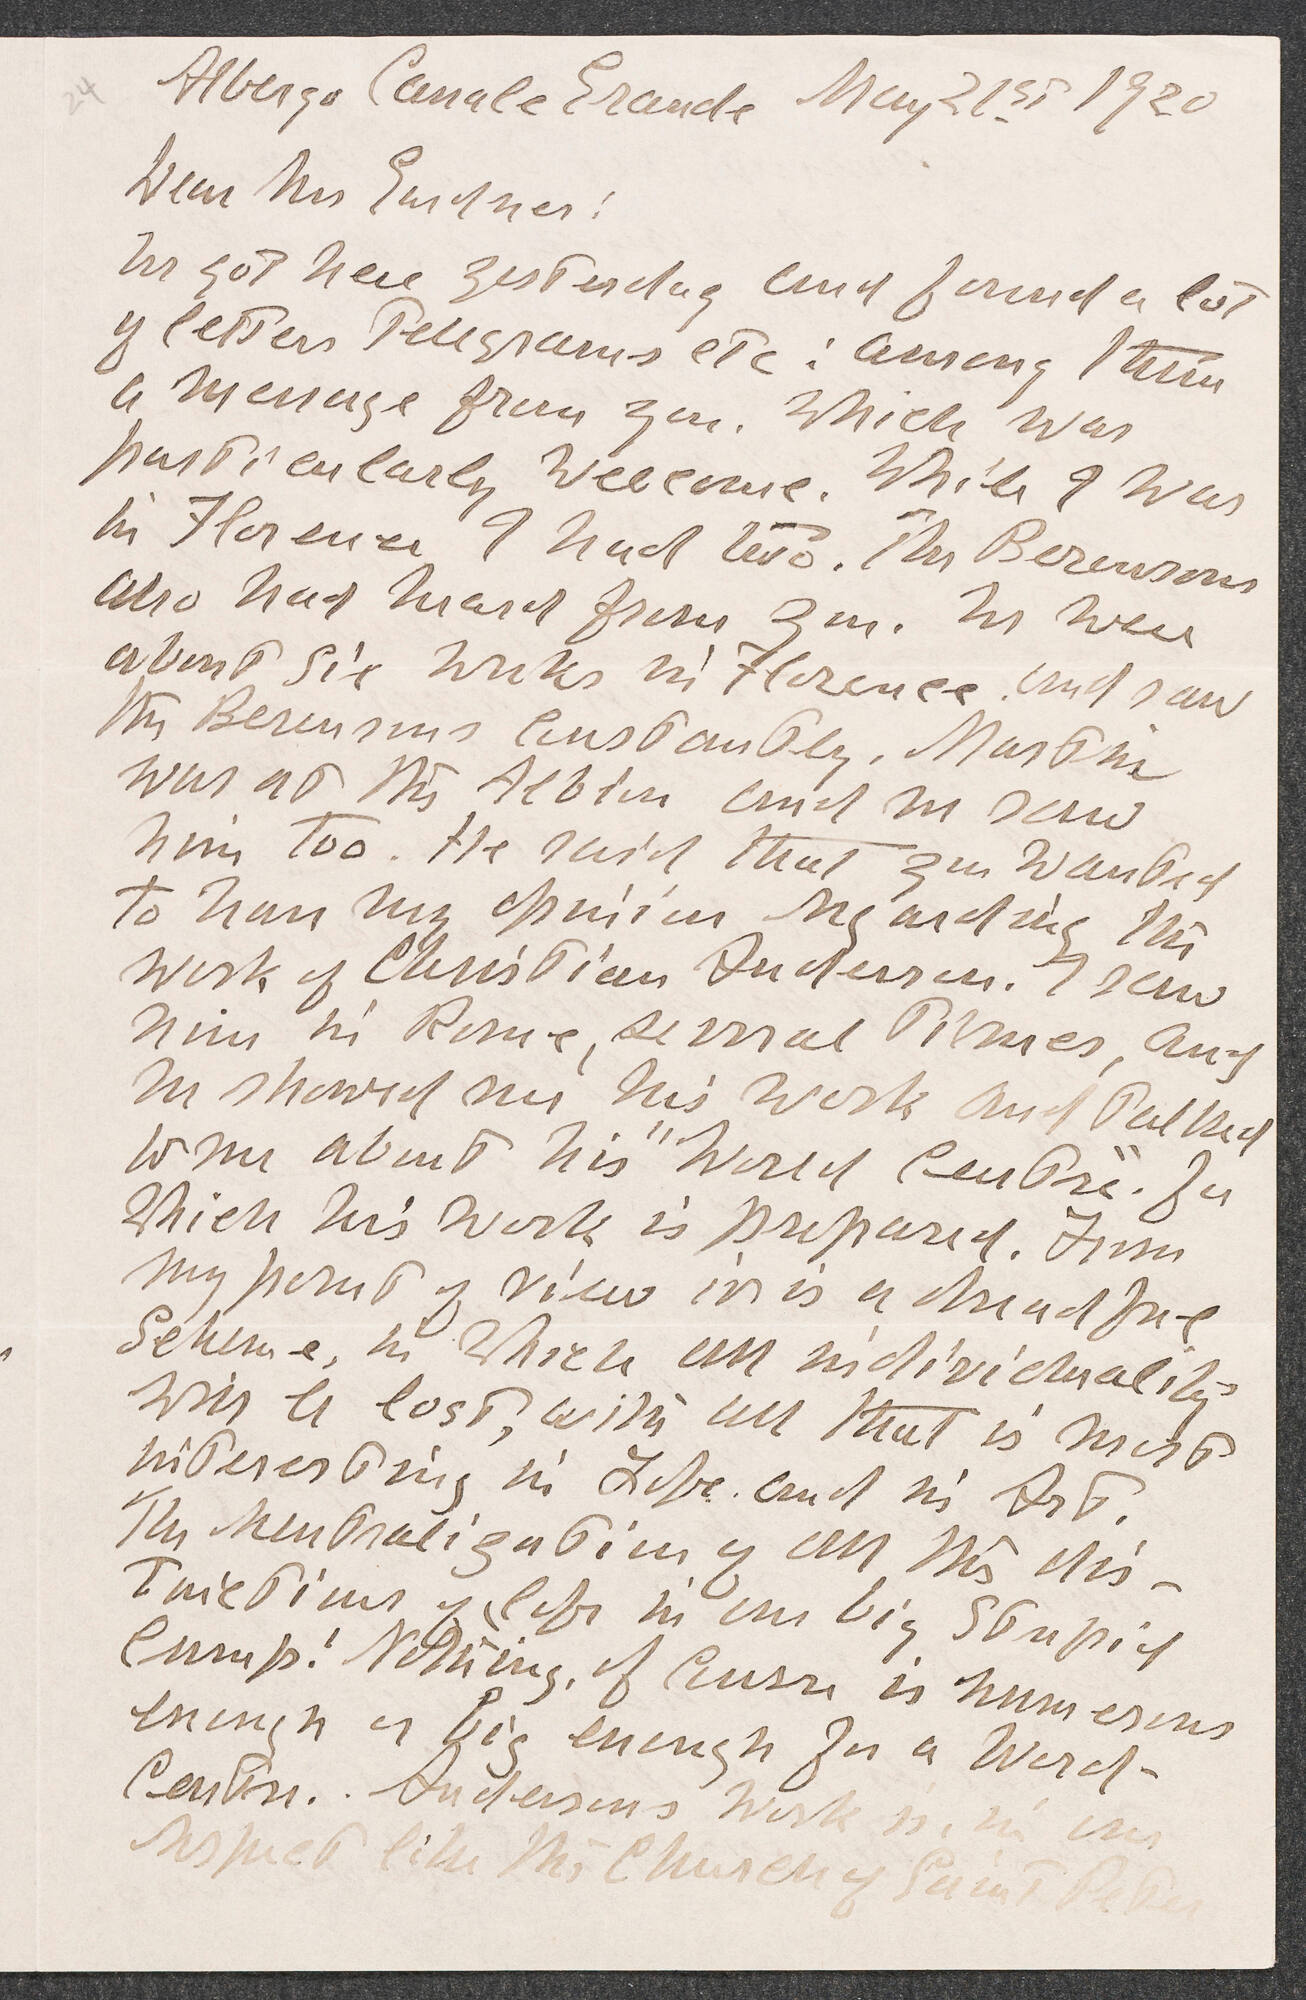 24
Albergo Canale Grande May 21st 1920
Dear Mrs Gardner:
We got here yesterday and found a lot
of letters telegrams etc: among them
a message from you. Which was
particularly welcome. While I was
in Florence I had two. The Berensons
also had heard from you. We were
about six weeks in Florence and saw
the Berensons constantly. Martin
was at the Albion and we saw
him too. He said that you wanted
to have my opinion regarding the
work of Christian Anderson. I saw
him in Rome, several times, and
he showed me his work and talked
to me about his "World Centre" for
which his work is prepared. From
my point of view it is a dreadful
scheme, in which all individuality
will be lost, with all that is most
interesting in Life and in Art.
The neutralization of all the dis-
tinctions of life in one big stupid
lump! Nothing, of course is numerous
enough or big enough for a World-
Centre. Andersons work is, in one
respect like the Church of Saint Peter